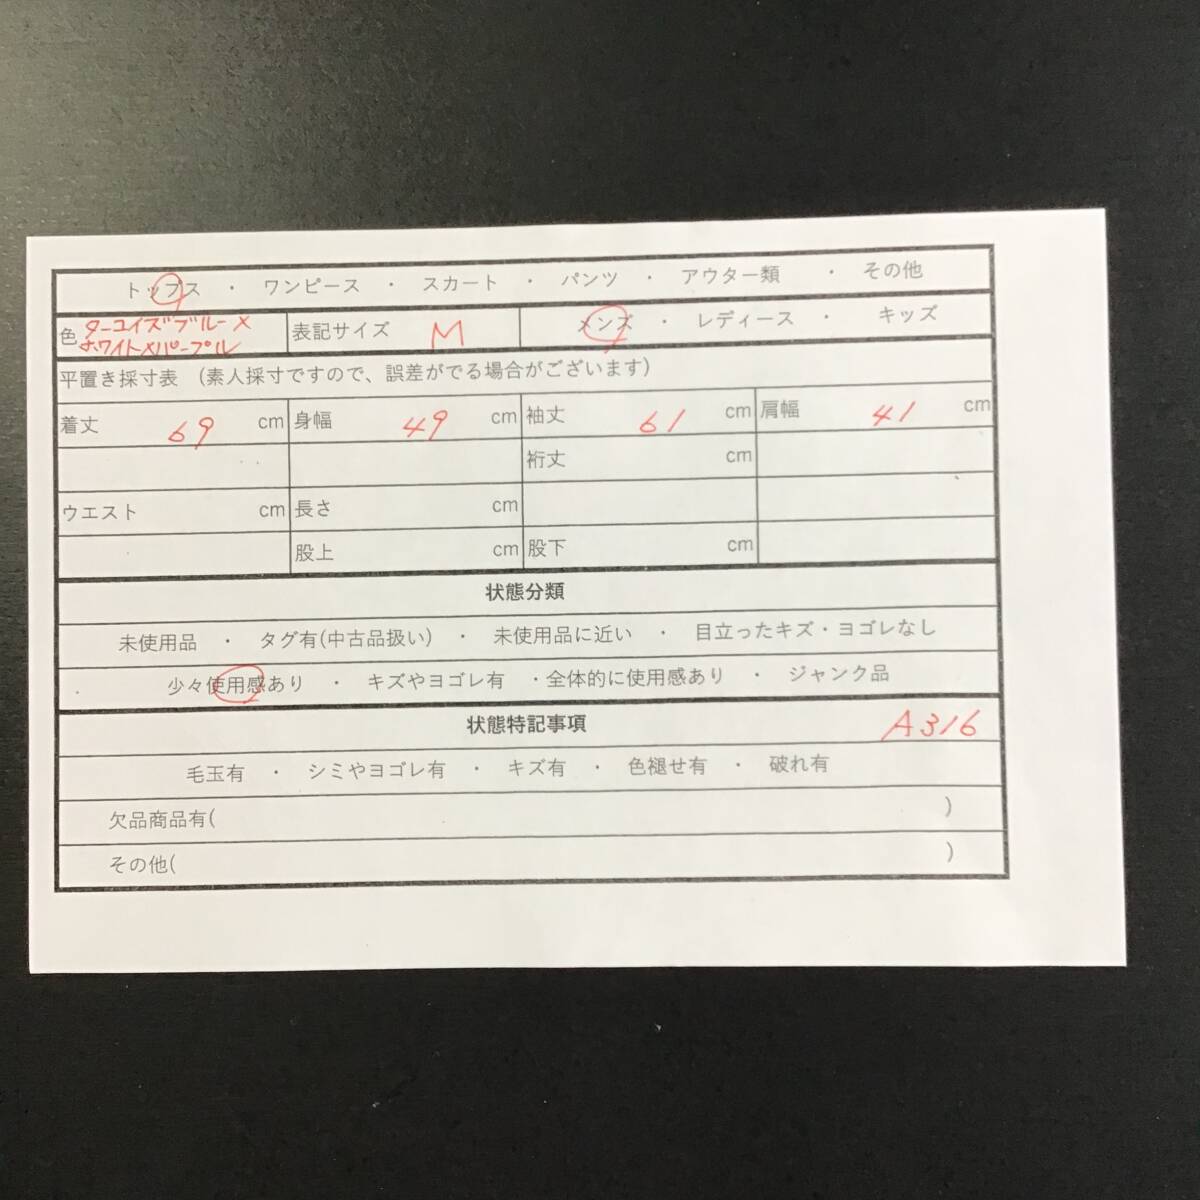 トップス ・ ワンピース ・ スカート ・ パンツ ・ アウター類 ・ その他
色 ターコイズブルー×ホワイト×パープル 表記サイズ M メンズ ・ レディース ・ キッズ
平置き採寸表 (素人採寸ですので、誤差がでる場合がございます)
着丈 69 cm 身幅 49 cm 袖丈 61 cm 肩幅 41 cm
裄丈 cm
ウエスト cm 長さ cm
股上 cm 股下 cm
状態分類
未使用品 ・ タグ有(中古品扱い) ・ 未使用品に近い ・ 目立ったキズ・ヨゴレなし
少々使用感あり ・ キズやヨゴレ有 ・全体的に使用感あり ・ ジャンク品
状態特記事項 A316
毛玉有 ・ シミやヨゴレ有 ・ キズ有 ・ 色褪せ有 ・ 破れ有
欠品商品有( )
その他( )